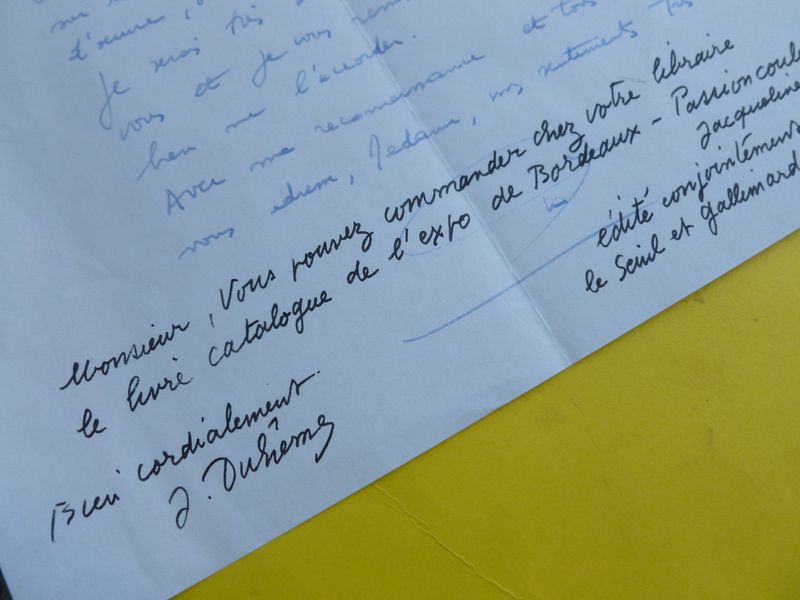 sur
l'œuvre,
Je serais très
vous et je vous
bien me l'accorder.
Avec ma reconnaissance et tous
vous Madame, mes sentiments très
Monsieur, Vous pouvez commander chez votre libraire
le livre catalogue de l'expo de Bordeaux - Passion coul
Jacqueline
édité conjointément
le Seuil et Gallimard
Bien cordialement.
J. Duhême